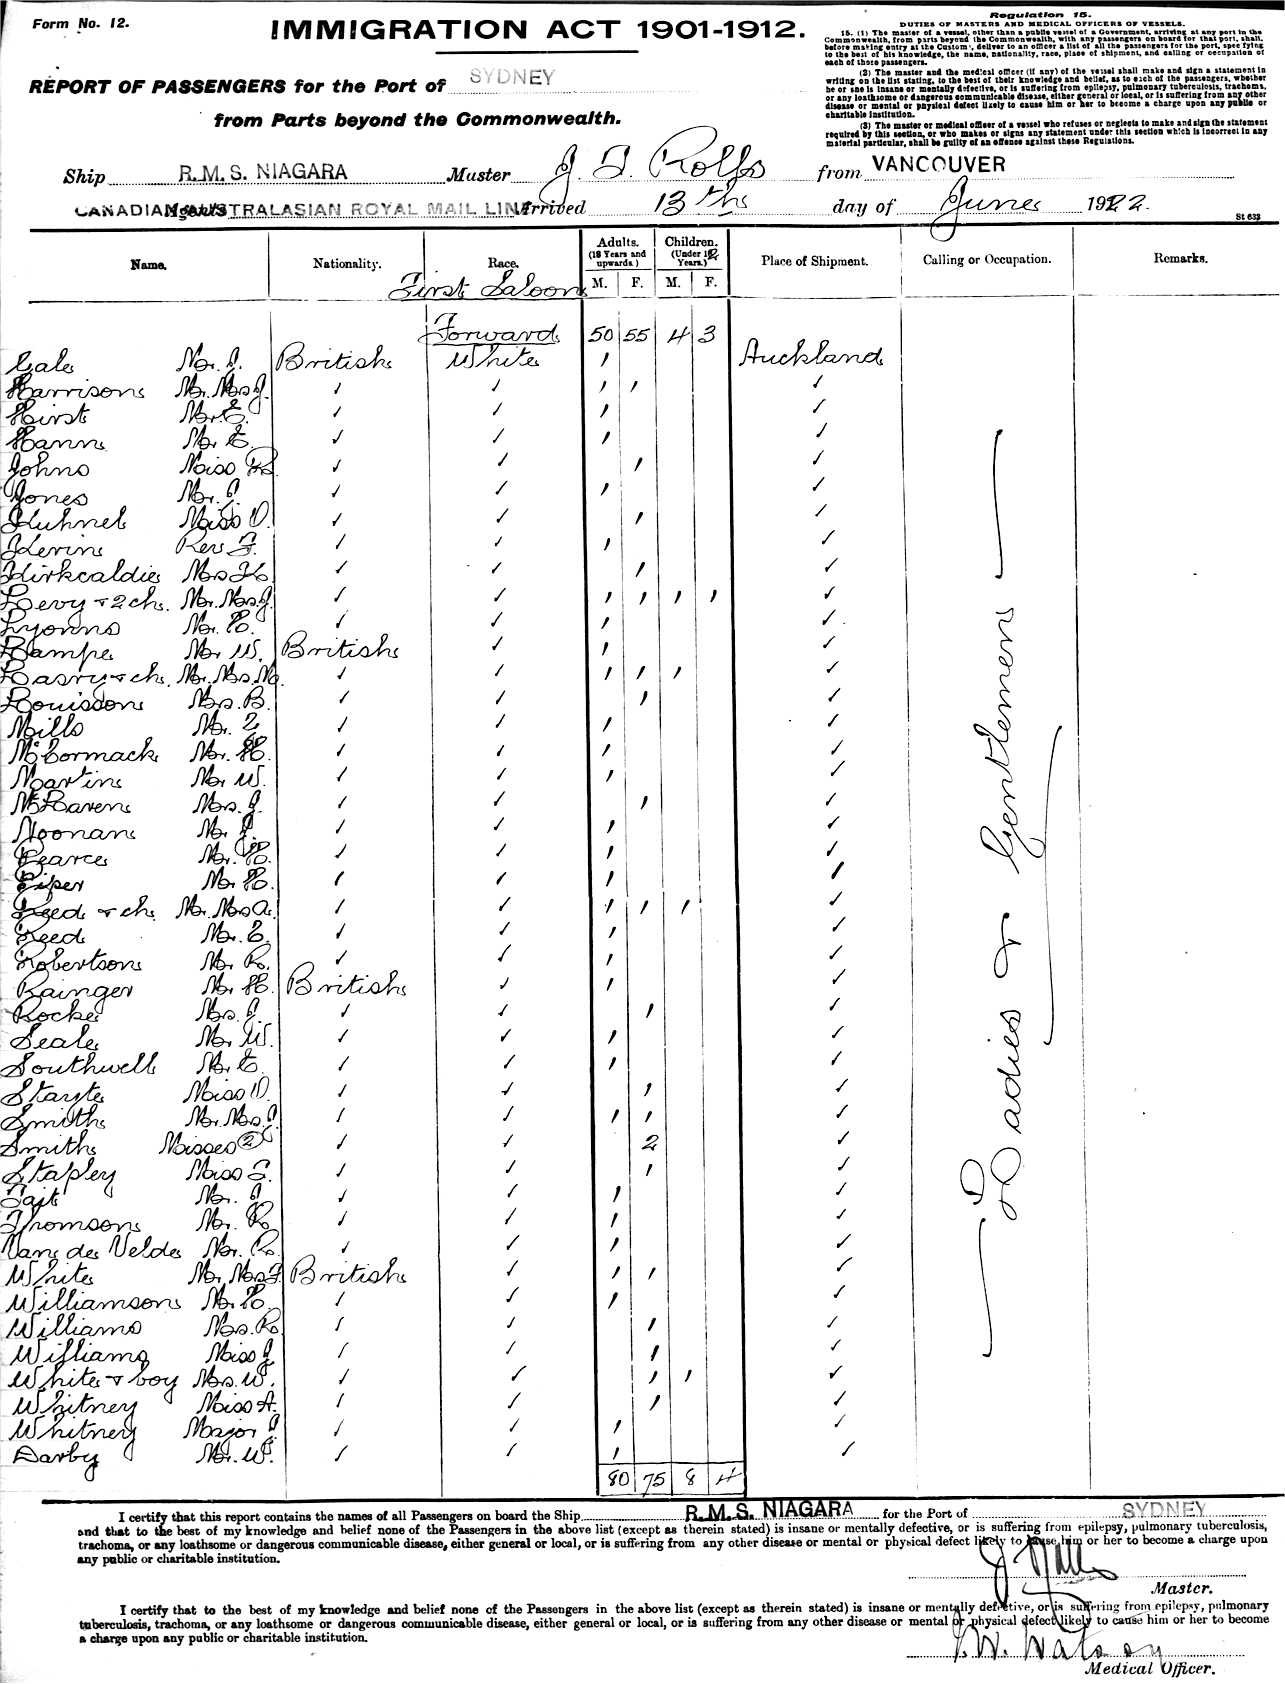 Form No. 12.
IMMIGRATION ACT 1901-1912.
Regulation 15.
DUTIES OF MASTERS AND MEDICAL OFFICERS OF VESSELS.
15. (1) The master of a vessel, other than a public vessel of a Government, arriving at any port in the
Commonwealth, from parts beyond the Commonwealth, with any passengers on board for that port, shall,
before making entry at the Customs, deliver to an officer a list of all the passengers for the port, specifying
to the best of his knowledge, the name, nationality, race, place of shipment, and calling or occupation of
each of those passengers.
(2) The master and the medical officer (if any) of the vessel shall make and sign a statement in
writing on the list stating, to the best of their knowledge and belief, as to each of the passengers, whether
he or she is insane or mentally defective, or is suffering from epilepsy, pulmonary tuberculosis, trachoma,
or any loathsome or dangerous communicable disease, either general or local, or is suffering from any other
disease or mental or physical defect likely to cause him or her to become a charge upon any public or
charitable institution.
(3) The master or medical officer of a vessel who refuses or neglects to make and sign the statement
required by this section, or who makes or signs any statement under this section which is incorrect in any
material particular, shall be guilty of an offense against these Regulations.
REPORT OF PASSENGERS for the Port of SYDNEY
from Parts beyond the Commonwealth.
Ship R.M.S. NIAGARA Master J. T. Rolls from VANCOUVER
CANADIAN AUSTRALASIAN ROYAL MAIL LINE Arrived 13th day of June 1922.
St 633
Name. Nationality. Race. Adults. (18 Years and upwards.) Children. (Under 12 Years.) Place of Shipment. Calling or Occupation. Remarks.
First Saloon M. F. M. F.
Forward 50 55 4 3
Cale Mr. J. British White 1 Auckland
Harrison Mr. Mrs J. ✓ ✓ 1 1 ✓
Hirst Mr. E. ✓ ✓ 1 ✓
Hann Mr. E. ✓ ✓ 1 ✓
Johns Miss ✓ ✓ 1 ✓
Jones Mr. J. ✓ ✓ 1 ✓
Kuhnel Miss D. ✓ ✓ 1 ✓
Kerin Rev F. ✓ ✓ 1 ✓
Kirkcaldie Mrs ✓ ✓ 1 ✓
Levy + 2 ch. Mr. Mrs J. ✓ ✓ 1 1 1 1 ✓
Lyonns Mr. H. ✓ ✓ 1 ✓
Lampe Mr W. British ✓ 1 ✓
Lasry + ch. Mr. Mrs. M. ✓ ✓ 1 1 1 ✓
Louisson Mrs. B. ✓ ✓ 1 ✓
Mills Mr. ✓ ✓ 1 ✓
McCormack Mr. H. ✓ ✓ 1 ✓
Martin Mr. W. ✓ ✓ 1 ✓
McLaren Mrs. J. ✓ ✓ 1 ✓
Noonan Mr. J. ✓ ✓ 1 ✓
Pearce Mr. H. ✓ ✓ 1 ✓
Piper Mr. H. ✓ ✓ 1 ✓
Reed + ch. Mr. Mrs A. ✓ ✓ 1 1 1 ✓
Reed Mr. E. ✓ ✓ 1 ✓
Robertson Mr. R. ✓ ✓ 1 ✓
Rainger Mr. H. British ✓ 1 ✓
Rocke Mrs. J. ✓ ✓ 1 ✓
Seale Mr. W. ✓ ✓ 1 ✓
Southwell Mr. E. ✓ ✓ 1 ✓
Starte Miss D. ✓ ✓ 1 ✓
Smith Mr. Mrs. J. ✓ ✓ 1 1 ✓
Smith Misses (2) ✓ ✓ 2 ✓
Stapley Miss ✓ ✓ 1 ✓
Tait Mr. J. ✓ ✓ 1 ✓
Thomson Mr. R. ✓ ✓ 1 ✓
Van de Velde Mr. R. ✓ ✓ 1 ✓
White Mr. Mrs F. British ✓ 1 1 ✓
Williamson Mr. H. ✓ ✓ 1 ✓
Williams Mrs. R. ✓ ✓ 1 ✓
Williams Miss J. ✓ ✓ 1 ✓
White + boy Mrs. W. ✓ ✓ 1 1 ✓
Whitney Miss A. ✓ ✓ 1 ✓
Whitney Major J. ✓ ✓ 1 ✓
Darby Mr. W. ✓ ✓ 1 ✓
80 75 8 4
Ladies & Gentlemen
I certify that this report contains the names of all Passengers on board the Ship R.M.S. NIAGARA for the Port of SYDNEY
and that to the best of my knowledge and belief none of the Passengers in the above list (except as therein stated) is insane or mentally defective, or is suffering from epilepsy, pulmonary tuberculosis,
trachoma, or any loathsome or dangerous communicable disease, either general or local, or is suffering from any other disease or mental or physical defect likely to cause him or her to become a charge upon
any public or charitable institution.
J. Rolls
Master.
I certify that to the best of my knowledge and belief none of the Passengers in the above list (except as therein stated) is insane or mentally defective, or is suffering from epilepsy, pulmonary
tuberculosis, trachoma, or any loathsome or dangerous communicable disease, either general or local, or is suffering from any other disease or mental or physical defect likely to cause him or her to become
a charge upon any public or charitable institution.
Watson
Medical Officer.